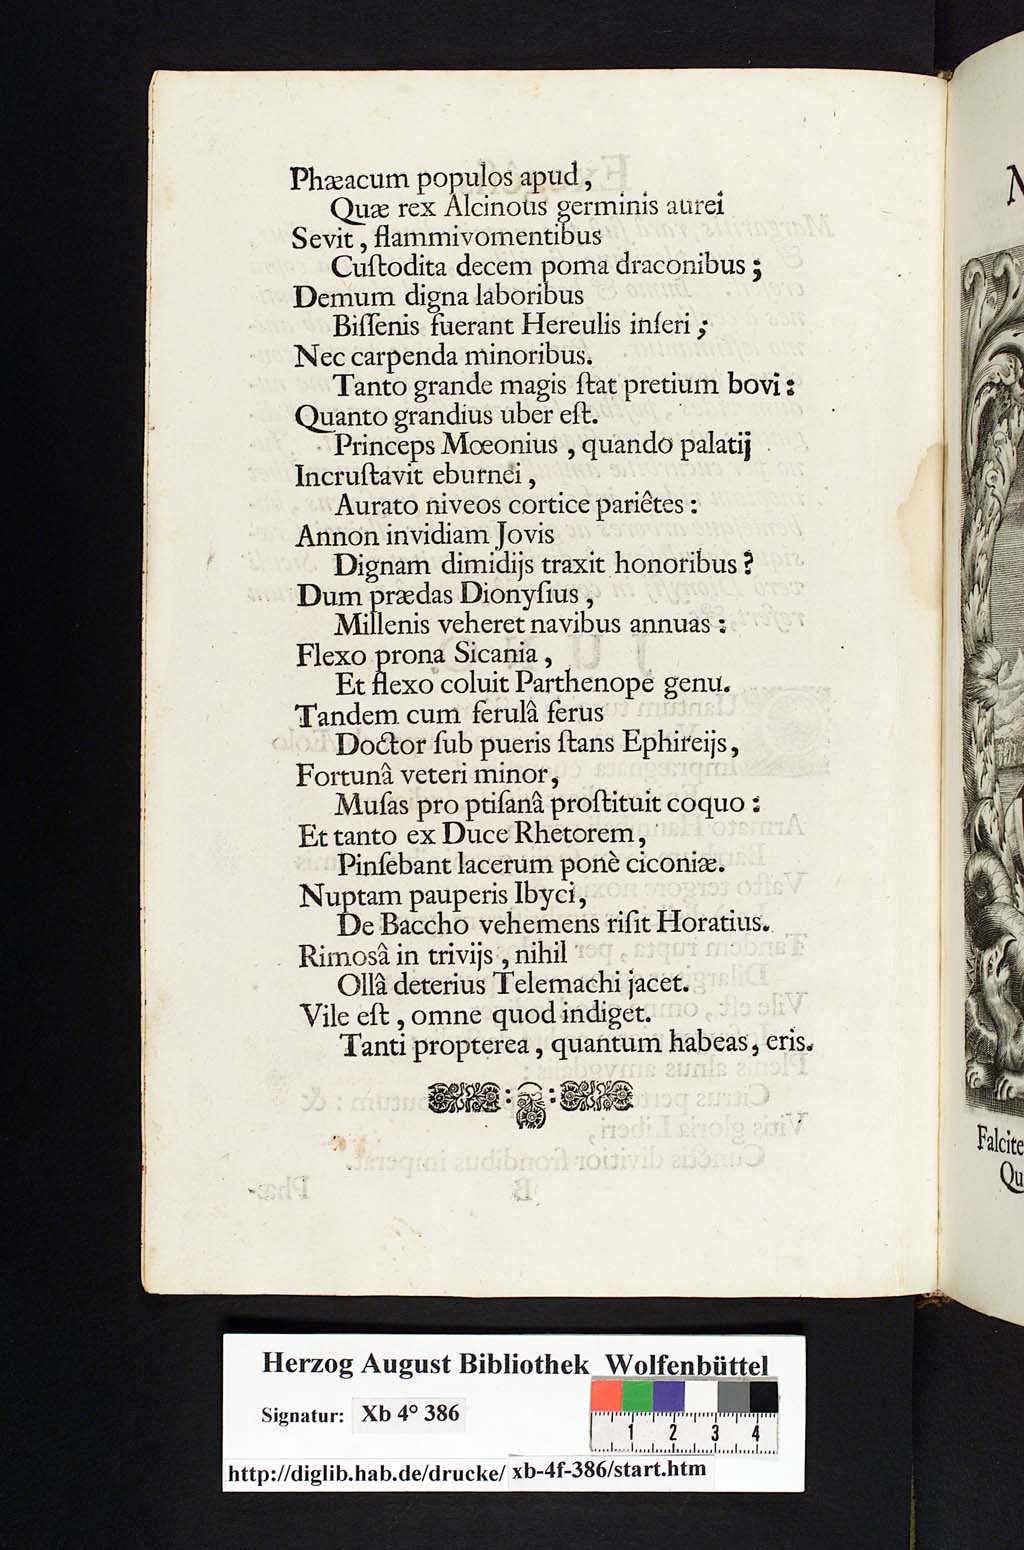 Phæacum populos apud,
Quæ rex Alcinous germinis aurei
Sevit, flammivomentibus
Cuſtodita decem poma draconibus;
Demum digna laboribus
Biſſenis fuerant Hereulis inſeri;
Nec carpenda minoribus.
Tanto grande magis ſtat pretium bovi:
Quanto grandius uber eſt.
Princeps Mœonius, quando palatij
Incruſtavit eburnei,
Aurato niveos cortice pariêtes:
Annon invidiam Jovis
Dignam dimidijs traxit honoribus?
Dum prædas Dionyſius,
Millenis veheret navibus annuas:
Flexo prona Sicania,
Et flexo coluit Parthenope genu.
Tandem cum ferulâ ferus
Doctor ſub pueris ſtans Ephireijs,
Fortunâ veteri minor,
Muſas pro ptiſanâ proſtituit coquo:
Et tanto ex Duce Rhetorem,
Pinſebant lacerum ponè ciconiæ.
Nuptam pauperis Ibyci,
De Baccho vehemens riſit Horatius.
Rimosâ in trivijs, nihil
Ollâ deterius Telemachi jacet.
Vile eſt, omne quod indiget.
Tanti propterea, quantum habeas, eris.
Falcite
Qu
Herzog August Bibliothek Wolfenbüttel
Signatur: Xb 4° 386
1 2 3 4
http://diglib.hab.de/drucke/ xb-4f-386/start.htm